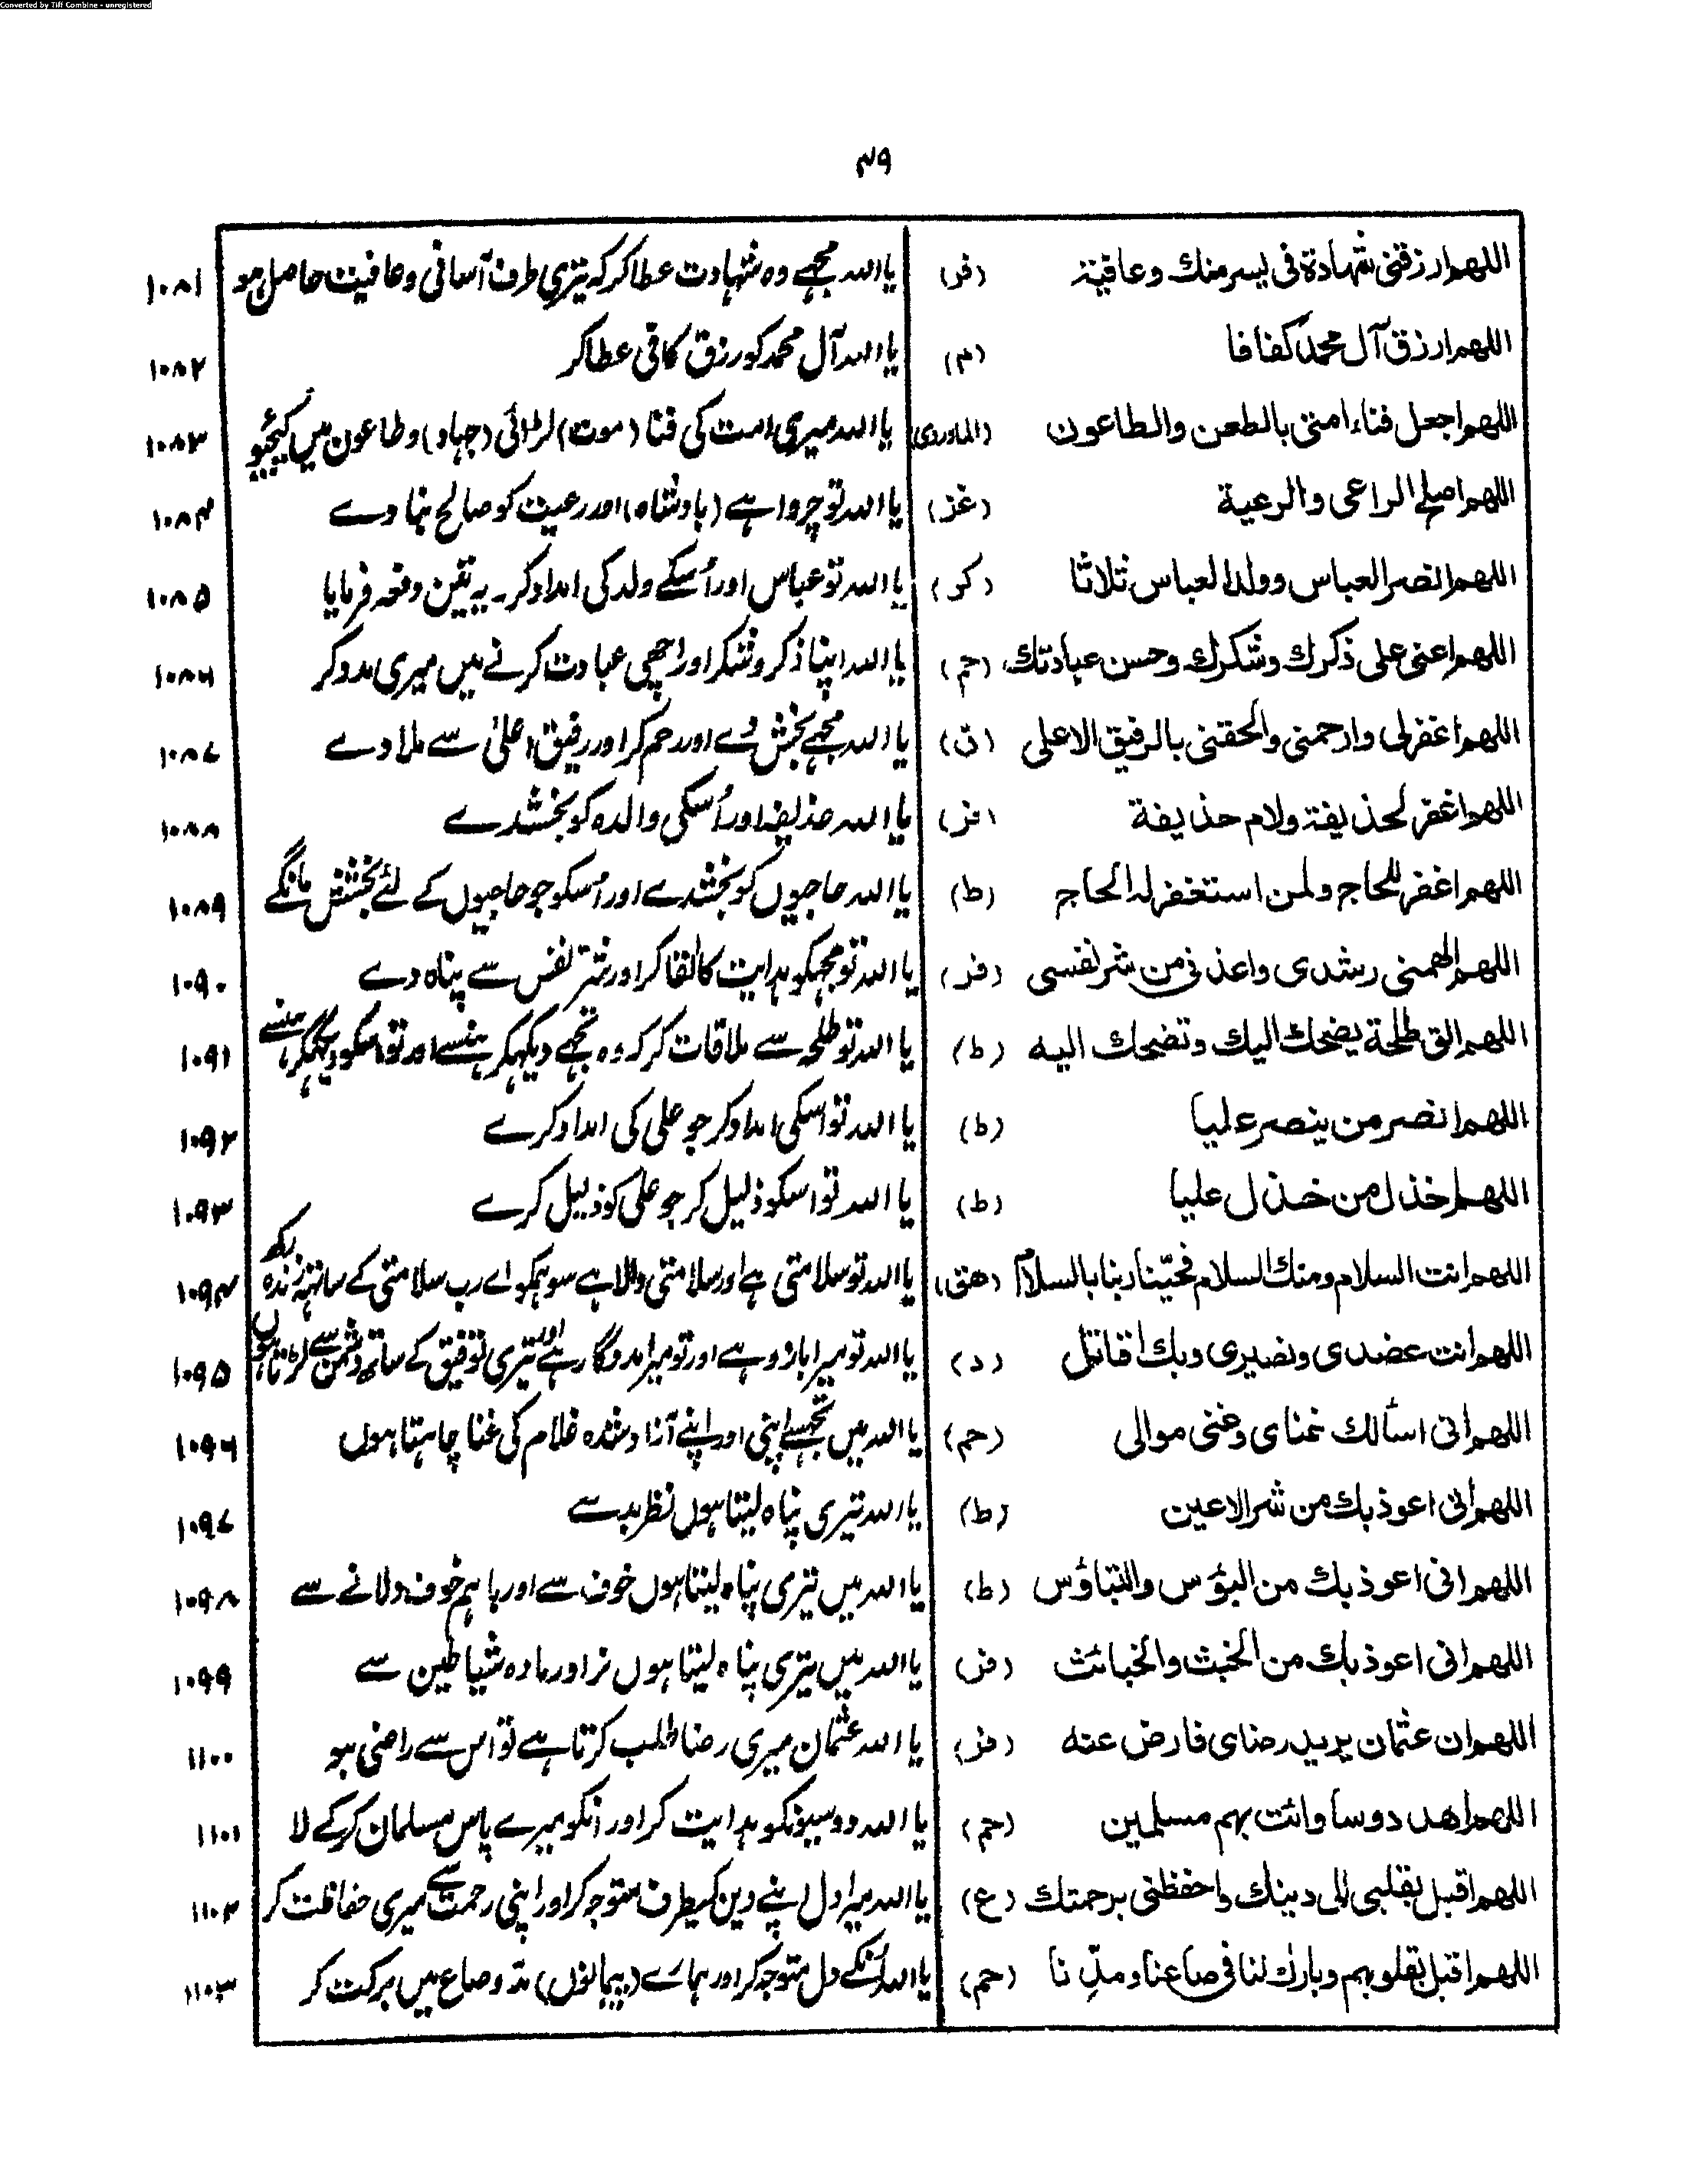 Converted by Tiff Combine - unregistered
۴۹
اللهم ارزقنی شهادة فی یسر منك وعافیة (فر) یا اللہ مجھے وہ شہادت عطا کر کہ تیری طرف آسانی وعافیت حاصل ہو ۱۰۸۱
اللهم ارزق آل محمد کفافا (م) یا اللہ آل محمد کو رزق کافی عطا کر ۱۰۸۲
اللهم اجعل فناء امتی بالطعن والطاعون (الماوردی) یا اللہ میری امت کی فنا (موت) لڑائی (جہاد) وطاعون میں کیجیو ۱۰۸۳
اللهم اصلح الراعی والرعیة (غز) یا اللہ تو چرواہے (بادشاہ) اور رعیت کو صالح بنا دے ۱۰۸۴
اللهم انصر العباس وولد العباس ثلاثا (کو) یا اللہ تو عباس اور اُسکے ولد کی امداد کر۔ یہ تین دفعہ فرمایا ۱۰۸۵
اللهم اعنی علی ذکرك وشکرك وحسن عبادتك (حم) یا اللہ اپنا ذکر وشکر اور اچھی عبادت کرنے میں میری مدد کر ۱۰۸۶
اللهم اغفرلی وارحمنی والحقنی بالرفیق الاعلی (ق) یا اللہ مجھے بخش دے اور رحم کر اور رفیق اعلیٰ سے ملا دے ۱۰۸۷
اللهم اغفر لحذیفة ولام حذیفة (فر) یا اللہ حذیفہ اور اُسکی والدہ کو بخشدے ۱۰۸۸
اللهم اغفر للحاج ولمن استغفر له الحاج (ط) یا اللہ حاجیوں کو بخشدے اور اُسکو جو حاجیوں کے لئے بخشش مانگے ۱۰۸۹
اللهم الهمنی رشدی واعذنی من شر نفسی (فر) یا اللہ تو مجہکو ہدایت کا القا کر اور شر نفس سے پناہ دے ۱۰۹۰
اللهم الق طلحة یضحك الیك وتضحك الیه (ط) یا اللہ تو طلحہ سے ملاقات کر کہ وہ تجھے دیکہکر ہنسے اور تو اسکو دیکہکر ہنسے ۱۰۹۱
اللهم انصر من ینصر علیا (ط) یا اللہ تو اسکی امداد کر جو علی کی امداد کرے ۱۰۹۲
اللهم اخذل من خذل علیا (ط) یا اللہ تو اسکو ذلیل کر جو علی کو ذلیل کرے ۱۰۹۳
اللهم انت السلام ومنك السلام فحیّنا ربنا بالسلام (هق) یا اللہ تو سلامتی ہے اور سلامتی والا ہے سو ہمکو اے رب سلامتی کے ساتھ زندہ رکھ ۱۰۹۴
اللهم انت عضدی ونصیری وبك اقاتل (د) یا اللہ تو میرا بازو ہے اور تو میرا مددگار ہے اور تیری توفیق کے ساتھ دشمن سے لڑتا ہوں ۱۰۹۵
اللهم انی اسألك غنای وغنی موالی (حم) یا اللہ میں تجھسے اپنی اور اپنے آزاد شدہ غلام کی غنا چاہتا ہوں ۱۰۹۶
اللهم انی اعوذ بك من شر الاعین (ط) یا اللہ تیری پناہ لیتا ہوں نظر بد سے ۱۰۹۷
اللهم انی اعوذ بك من البؤس والتباؤس (ط) یا اللہ میں تیری پناہ لیتا ہوں خوف سے اور باہم خوف دلانے سے ۱۰۹۸
اللهم انی اعوذ بك من الخبث والخبائث (فر) یا اللہ میں تیری پناہ لیتا ہوں نر اور مادہ شیاطین سے ۱۰۹۹
اللهم ان عثمان یرید رضای فارض عنه (فر) یا اللہ عثمان میری رضا طلب کرتا ہے تو اس سے راضی ہو ۱۱۰۰
اللهم اهد دوسا وائت بهم مسلمین (حم) یا اللہ دوسیونکو ہدایت کر اور انکو میرے پاس مسلمان کرکے لا ۱۱۰۱
اللهم اقبل بقلبی الی دینك واحفظنی برحمتك (ع) یا اللہ میرا دل اپنے دین کیطرف متوجہ کر اور اپنی رحمت سے میری حفاظت کر ۱۱۰۲
اللهم اقبل بقلوبهم وبارك لنا فی صاعنا ومدّنا (حم) یا اللہ اُنکے دل متوجہ کر اور ہمارے (پیمانوں) مد وصاع میں برکت کر ۱۱۰۳